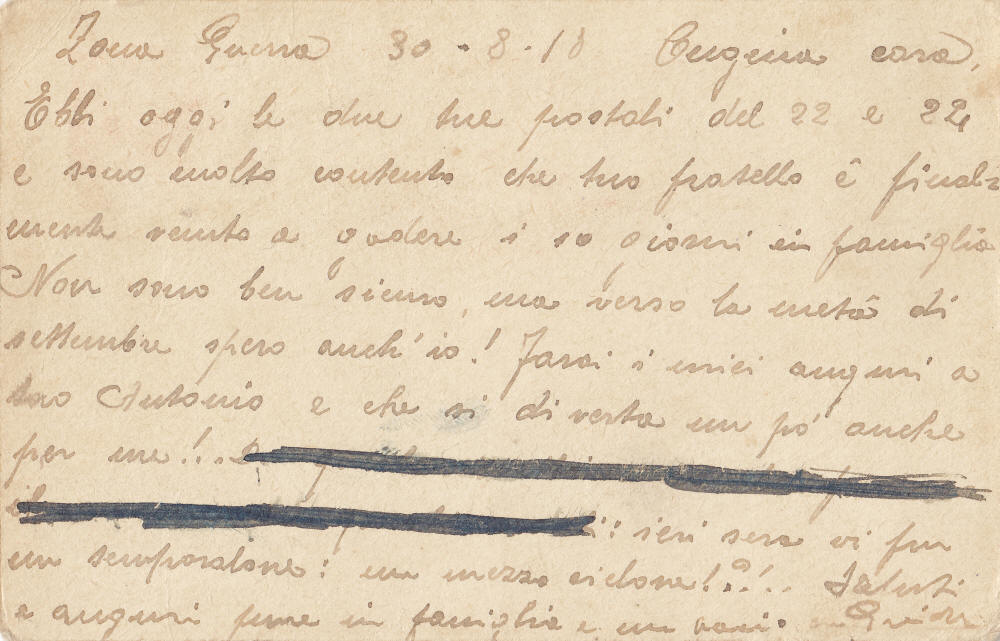 Zona Guerra 30 - 8 - 18 Eugenia cara,
Ebbi oggi le due tue postali del 22 e 24
e sono molto contento che tuo fratello è final=
mente venuto a godere i 10 giorni in famiglia
Non sono ben sicuro, ma verso la metà di
settembre spero anch'io! Farai i miei auguri a
tuo Antonio e che si diverta un pó anche
per me!...
ieri sera vi fu
un temporalone: un mezzo ciclone!?!.. Saluti
e auguri pure in famiglia e un bacio Guido